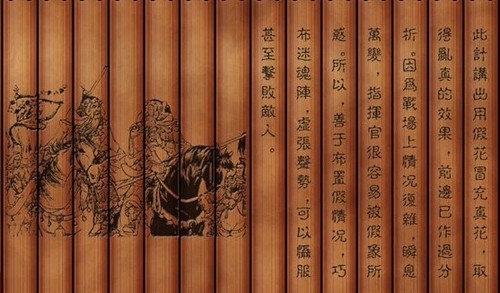 此計講出用假花冒充真花，取
得亂真的效果，前邊已作過分
折。因爲戰場上情况復雜，瞬息
萬變，指揮官很容易被假象所
惑。所以，善于布置假情况，巧
布迷魂陣，虛張聲勢，可以懾服
甚至擊敗敵人。